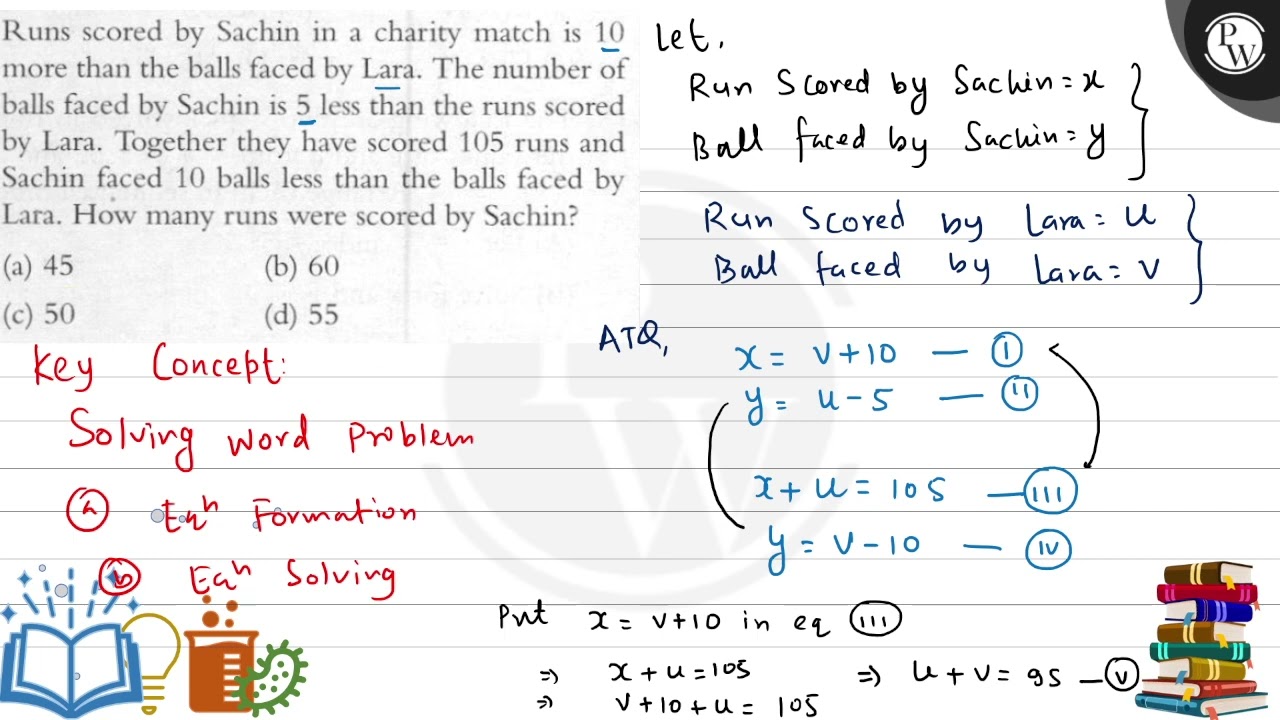 Runs scored by Sachin in a charity match is 10
more than the balls faced by Lara. The number of
balls faced by Sachin is 5 less than the runs scored
by Lara. Together they have scored 105 runs and
Sachin faced 10 balls less than the balls faced by
Lara. How many runs were scored by Sachin?
(a) 45 (b) 60
(c) 50 (d) 55
Key Concept:
Solving word Problem
(a) Eqⁿ Formation
(b) Eqⁿ Solving
PW
Let,
Run Scored by Sachin = x
Ball faced by Sachin = y
Run Scored by Lara = u
Ball faced by Lara = v
ATQ,
x = v+10 — (I)
y = u-5 — (II)
x + u = 105 — (III)
y = v-10 — (IV)
Put x = v+10 in eq (III)
⇒ x + u = 105 ⇒ u + v = 95 — (V)
⇒ v+10+u = 105